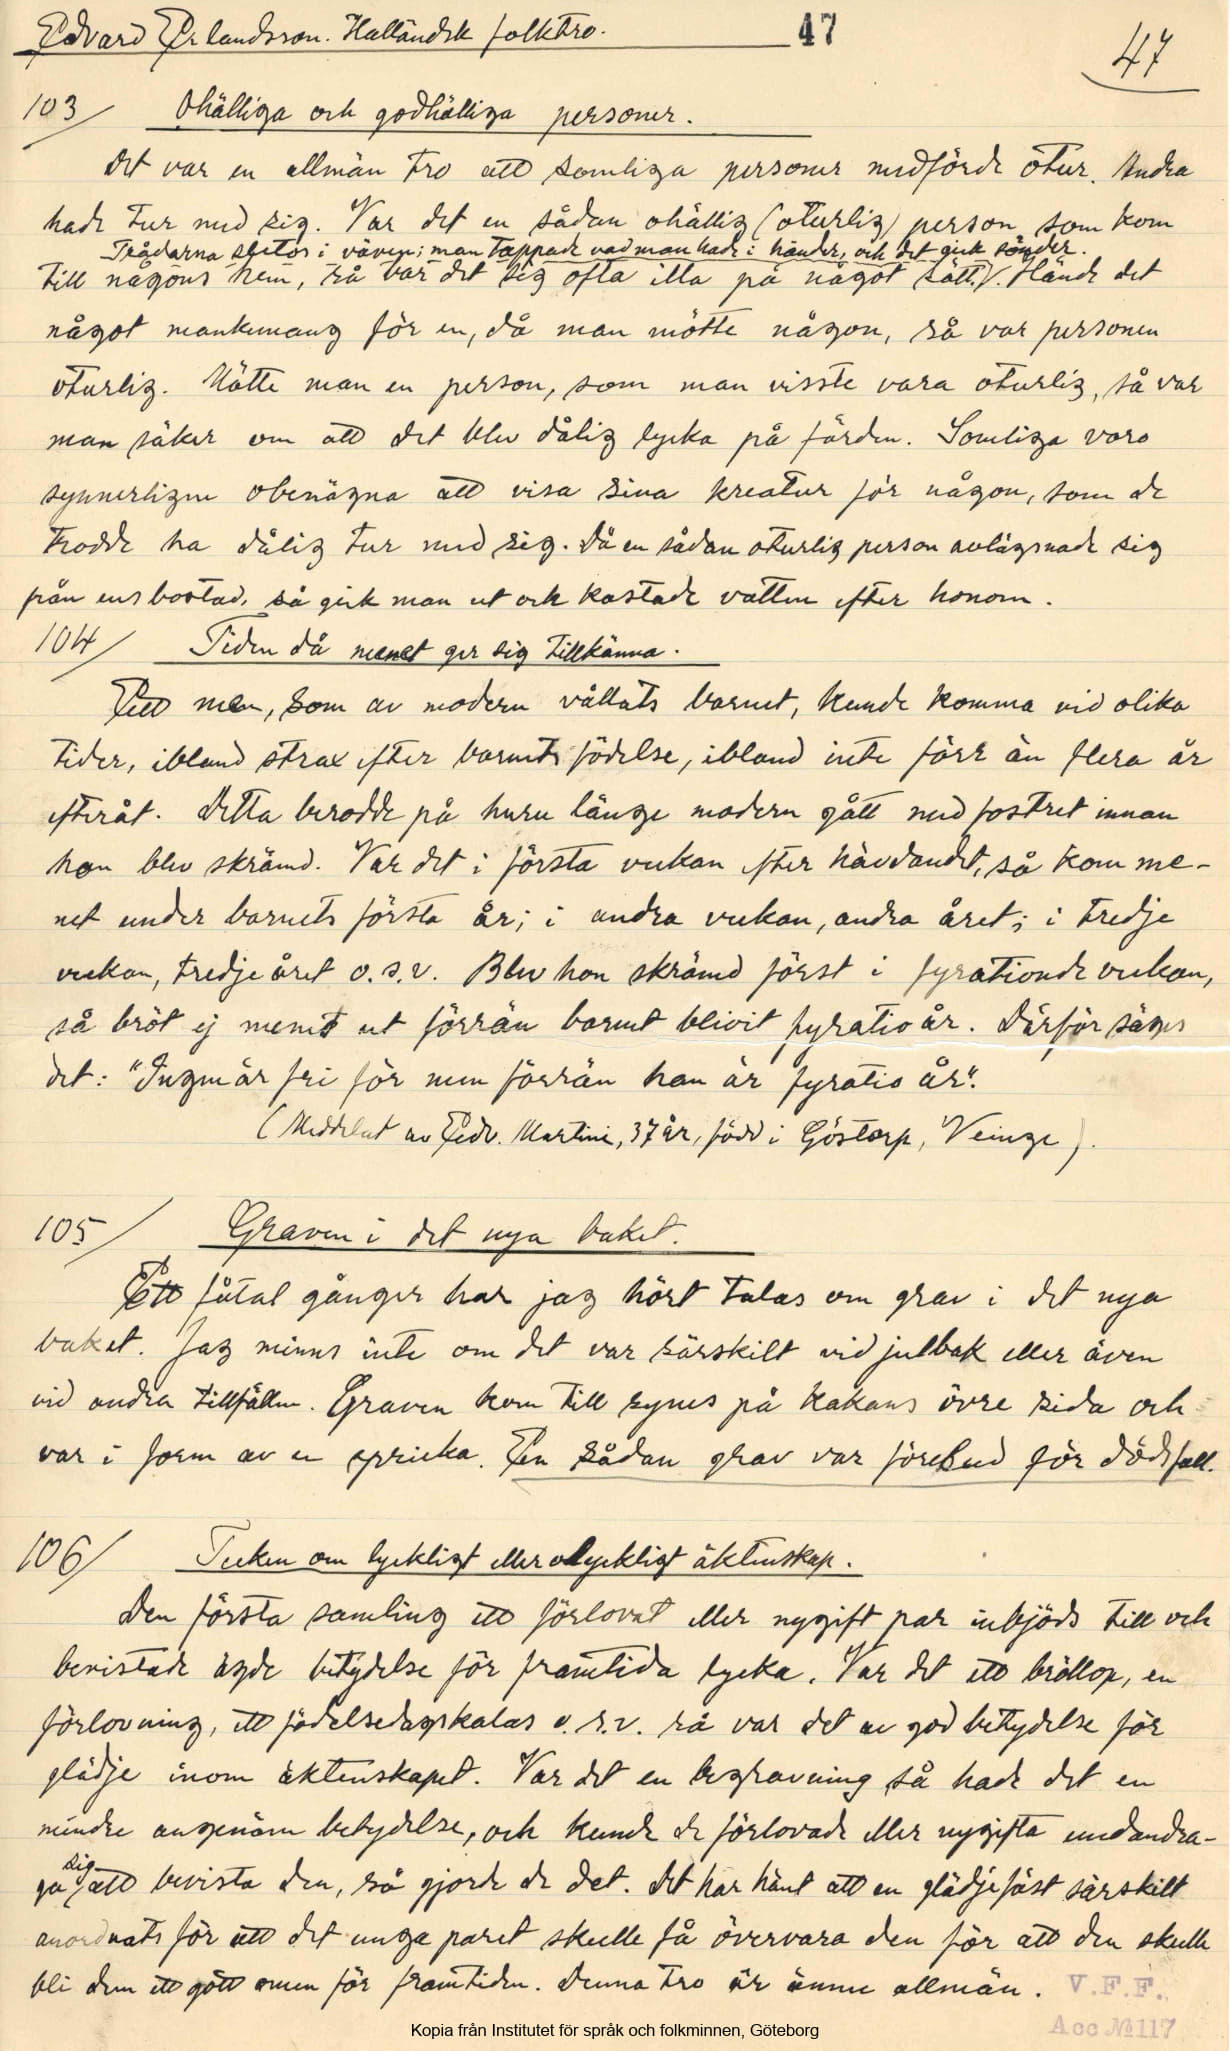 Edvard Erlandsson. Halländsk folktro. 47
47
103/ Ohälliga och godhälliga personer.
Det var en allmän tro att somliga personer medförde otur. Andra
hade tur med sig. Var det en sådan ohällig (oturlig) person som kom
Trådarna sletos i väven; man tappade vad man hade i händer, och det gick sönder.
till någons hem, så bar det sig ofta illa på något sätt. V. Hände det
något mankemang för en, då man mötte någon, så var personen
oturlig. Mötte man en person, som man visste vara oturlig, så var
man säker om att det blev dålig lycka på färden. Somliga voro
synnerligen obenägna att visa sina kreatur för någon, som de
trodde ha dålig tur med sig. Då en sådan oturlig person avlägsnade sig
från ens bostad, så gick man ut och kastade vatten efter honom.
104/ Tiden då menet ger sig tillkänna.
Ett men, som av modern vållats barnet, kunde komma vid olika
tider, ibland strax efter barnets födelse, ibland inte förr än flera år
efteråt. Detta berodde på huru länge modern gått med fostret innan
hon blev skrämd. Var det i första veckan efter hävdandet, så kom me-
net under barnets första år; i andra veckan, andra året; i tredje
veckan, tredje året o.s.v. Blev hon skrämd först i fyrationde veckan,
så bröt ej menet ut förrän barnet blivit fyratio år. Därför säges
det: "Ingen är fri för men förrän han är fyratio år".
(Meddelat av Edv. Martini, 37 år, född i Göstorp, Veinge).
105/ Graven i det nya baket.
Ett fåtal gånger har jag hört talas om grav i det nya
baket. Jag minns inte om det var särskilt vid julbak eller även
vid andra tillfällen. Graven kom till synes på kakans övre sida och
var i form av en spricka. En sådan grav var förebud för dödsfall.
106/ Tecken om lyckligt eller olyckligt äktenskap.
Den första samling ett förlovat eller nygift par inbjöds till och
bevistade ägde betydelse för framtida lycka. Var det ett bröllop, en
förlovning, ett födelsedagskalas o.s.v. så var det av god betydelse för
glädje inom äktenskapet. Var det en begravning så hade det en
mindre angenäm betydelse, och kunde de förlovade eller nygifta undandra-
sig
ga att bevista den, så gjorde de det. Det har hänt att en glädjefäst särskilt
anordnats för att det unga paret skulle få övervara den för att den skulle
bli dem ett gott omen för framtiden. Denna tro är ännu allmän.
V.F.F.
Acc № 117
Kopia från Institutet för språk och folkminnen, Göteborg